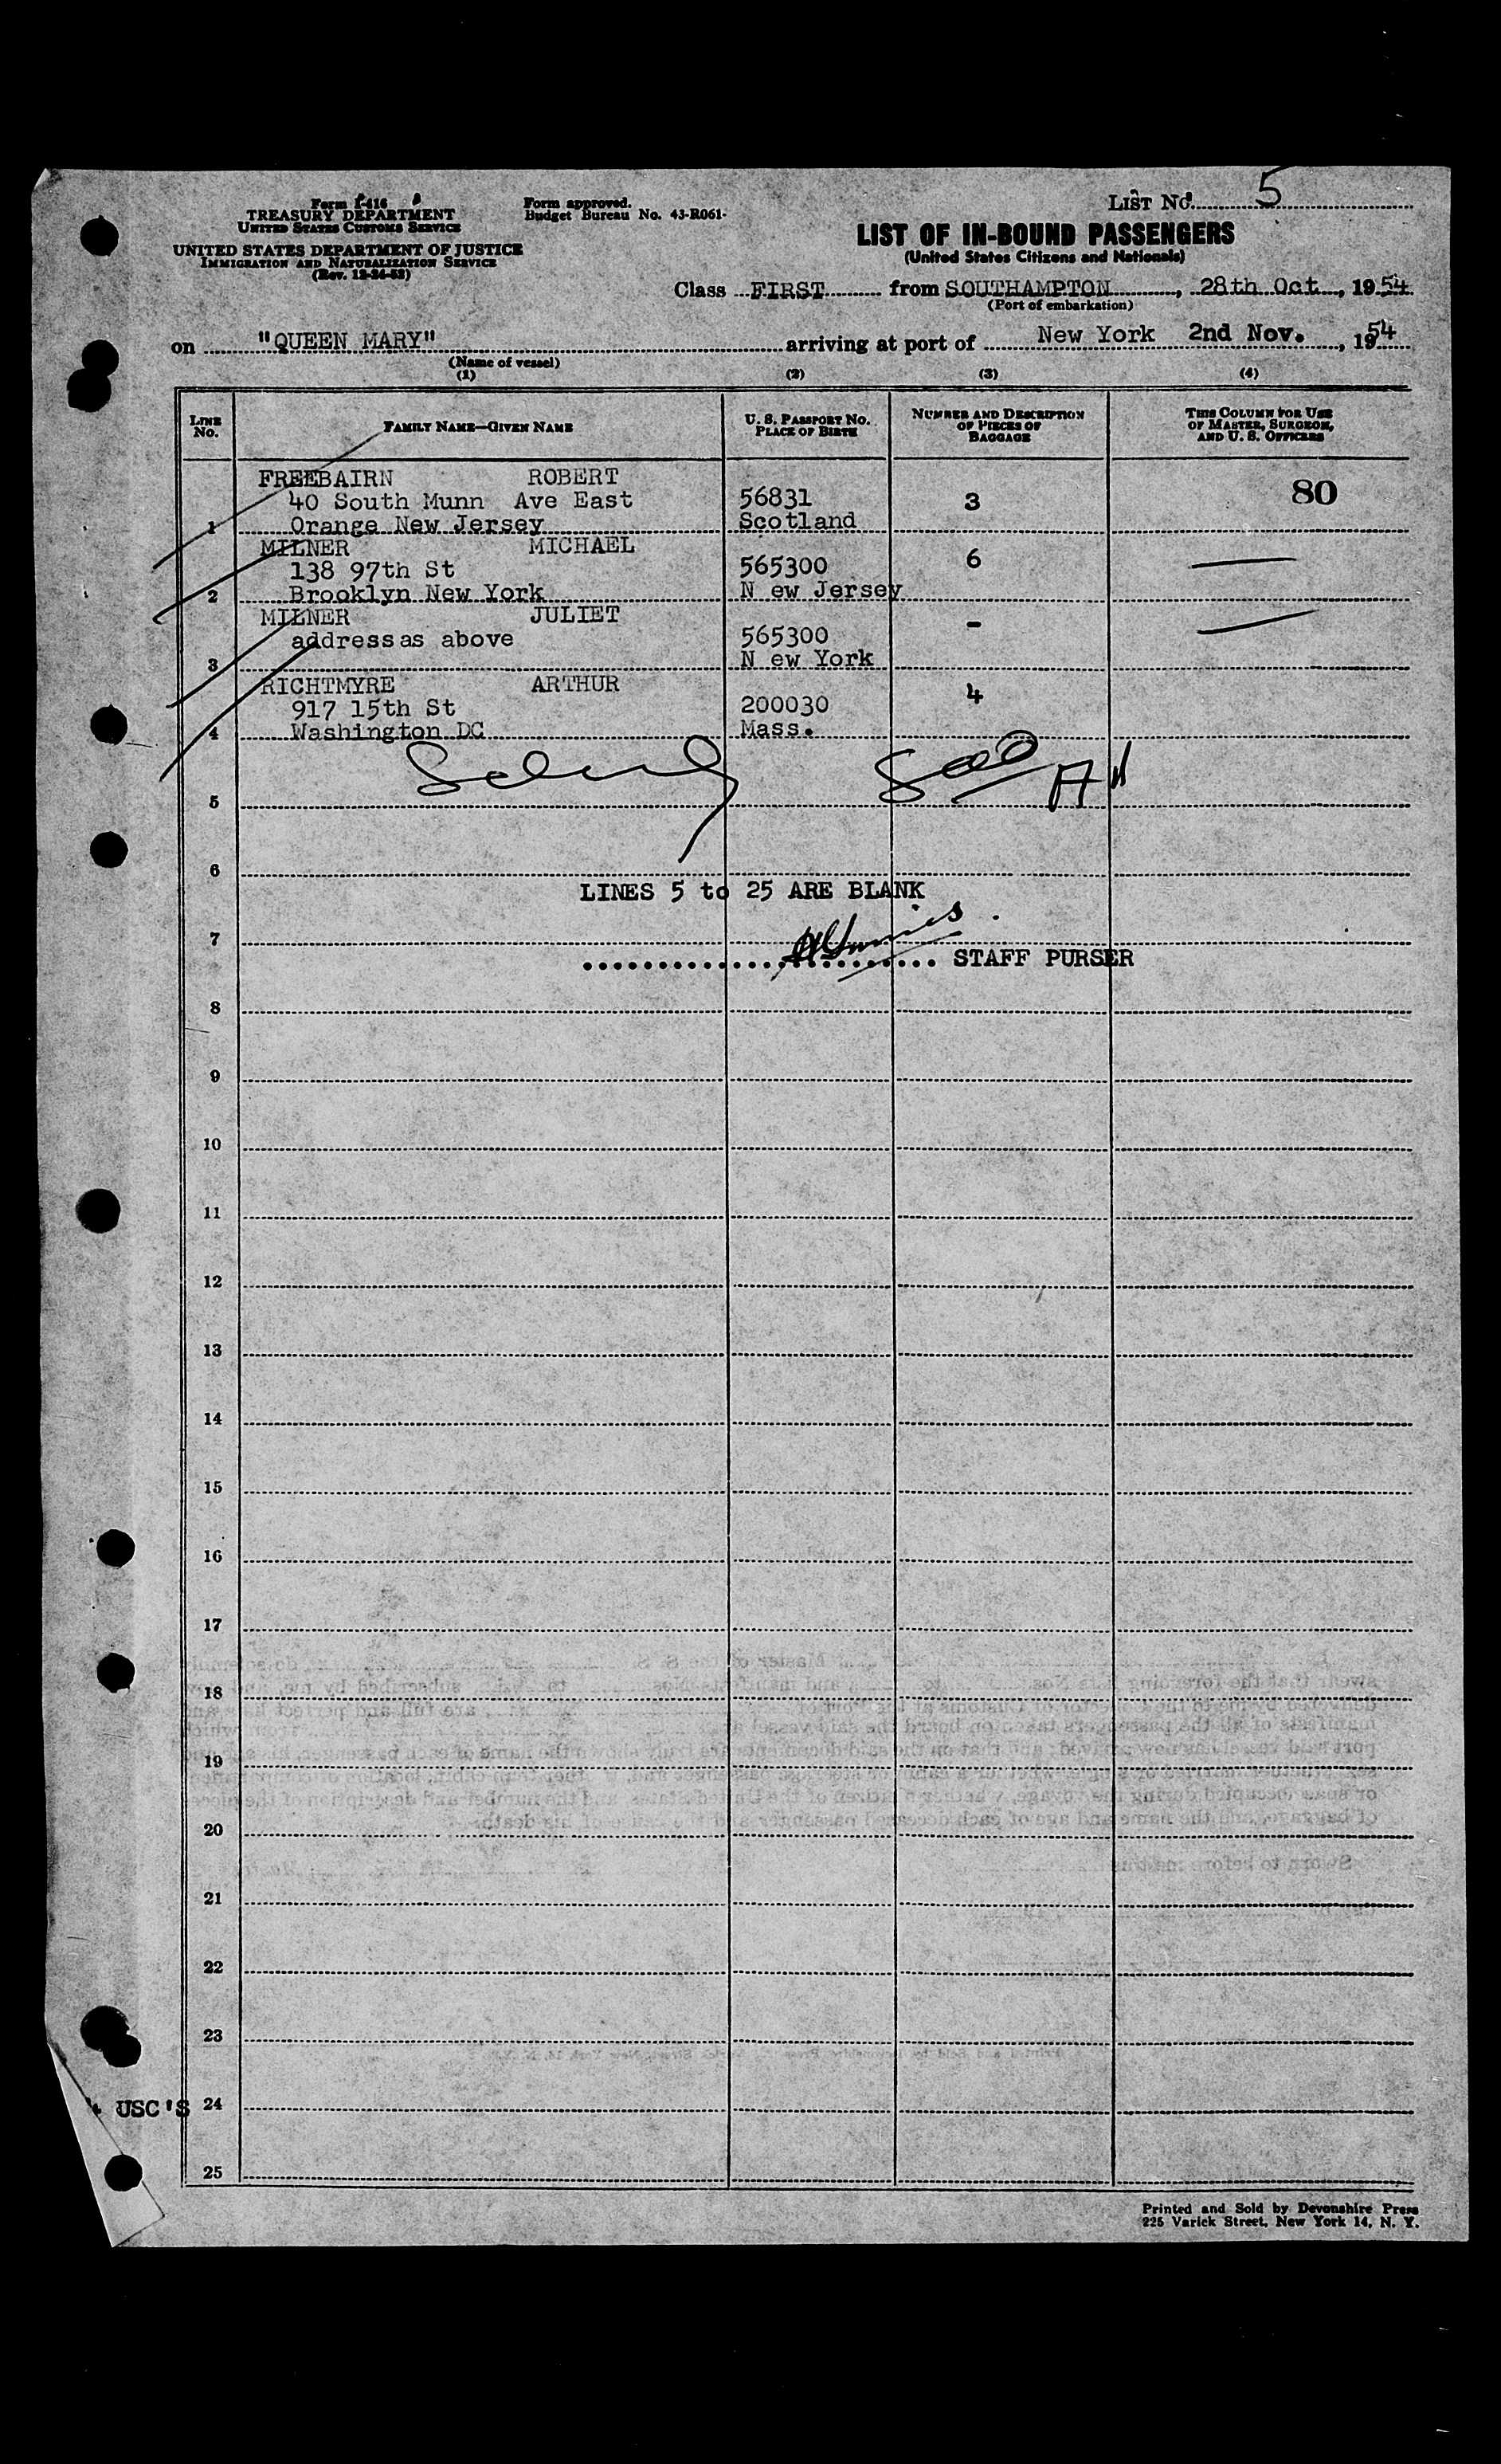 Form I-416
TREASURY DEPARTMENT
UNITED STATES CUSTOMS SERVICE
UNITED STATES DEPARTMENT OF JUSTICE
IMMIGRATION AND NATURALIZATION SERVICE
(Rev. 12-24-52)
Form approved.
Budget Bureau No. 43-R061-
LIST No. 5
LIST OF IN-BOUND PASSENGERS
(United States Citizens and Nationals)
Class FIRST from SOUTHAMPTON, 28th Oct, 1954
(Port of embarkation)
on "QUEEN MARY" arriving at port of New York 2nd Nov., 1954
(Name of vessel)
(1) (2) (3) (4)
LINE No. FAMILY NAME—GIVEN NAME U. S. PASSPORT No. PLACE OF BIRTH NUMBER AND DESCRIPTION OF PIECES OF BAGGAGE THIS COLUMN FOR USE OF MASTER, SURGEON, AND U. S. OFFICERS
FREEBAIRN ROBERT
40 South Munn Ave East 56831 3 80
1 Orange New Jersey Scotland
MILNER MICHAEL
138 97th St 565300 6
2 Brooklyn New York N ew Jersey
MILNER JULIET
address as above 565300 -
3 N ew York
RICHTMYRE ARTHUR
917 15th St 200030 4
4 Washington DC Mass.
5
6
LINES 5 to 25 ARE BLANK
7
STAFF PURSER
8
9
10
11
12
13
14
15
16
17
18
19
20
21
22
23
USC'S 24
25
Printed and Sold by Devonshire Press
225 Varick Street, New York 14, N. Y.